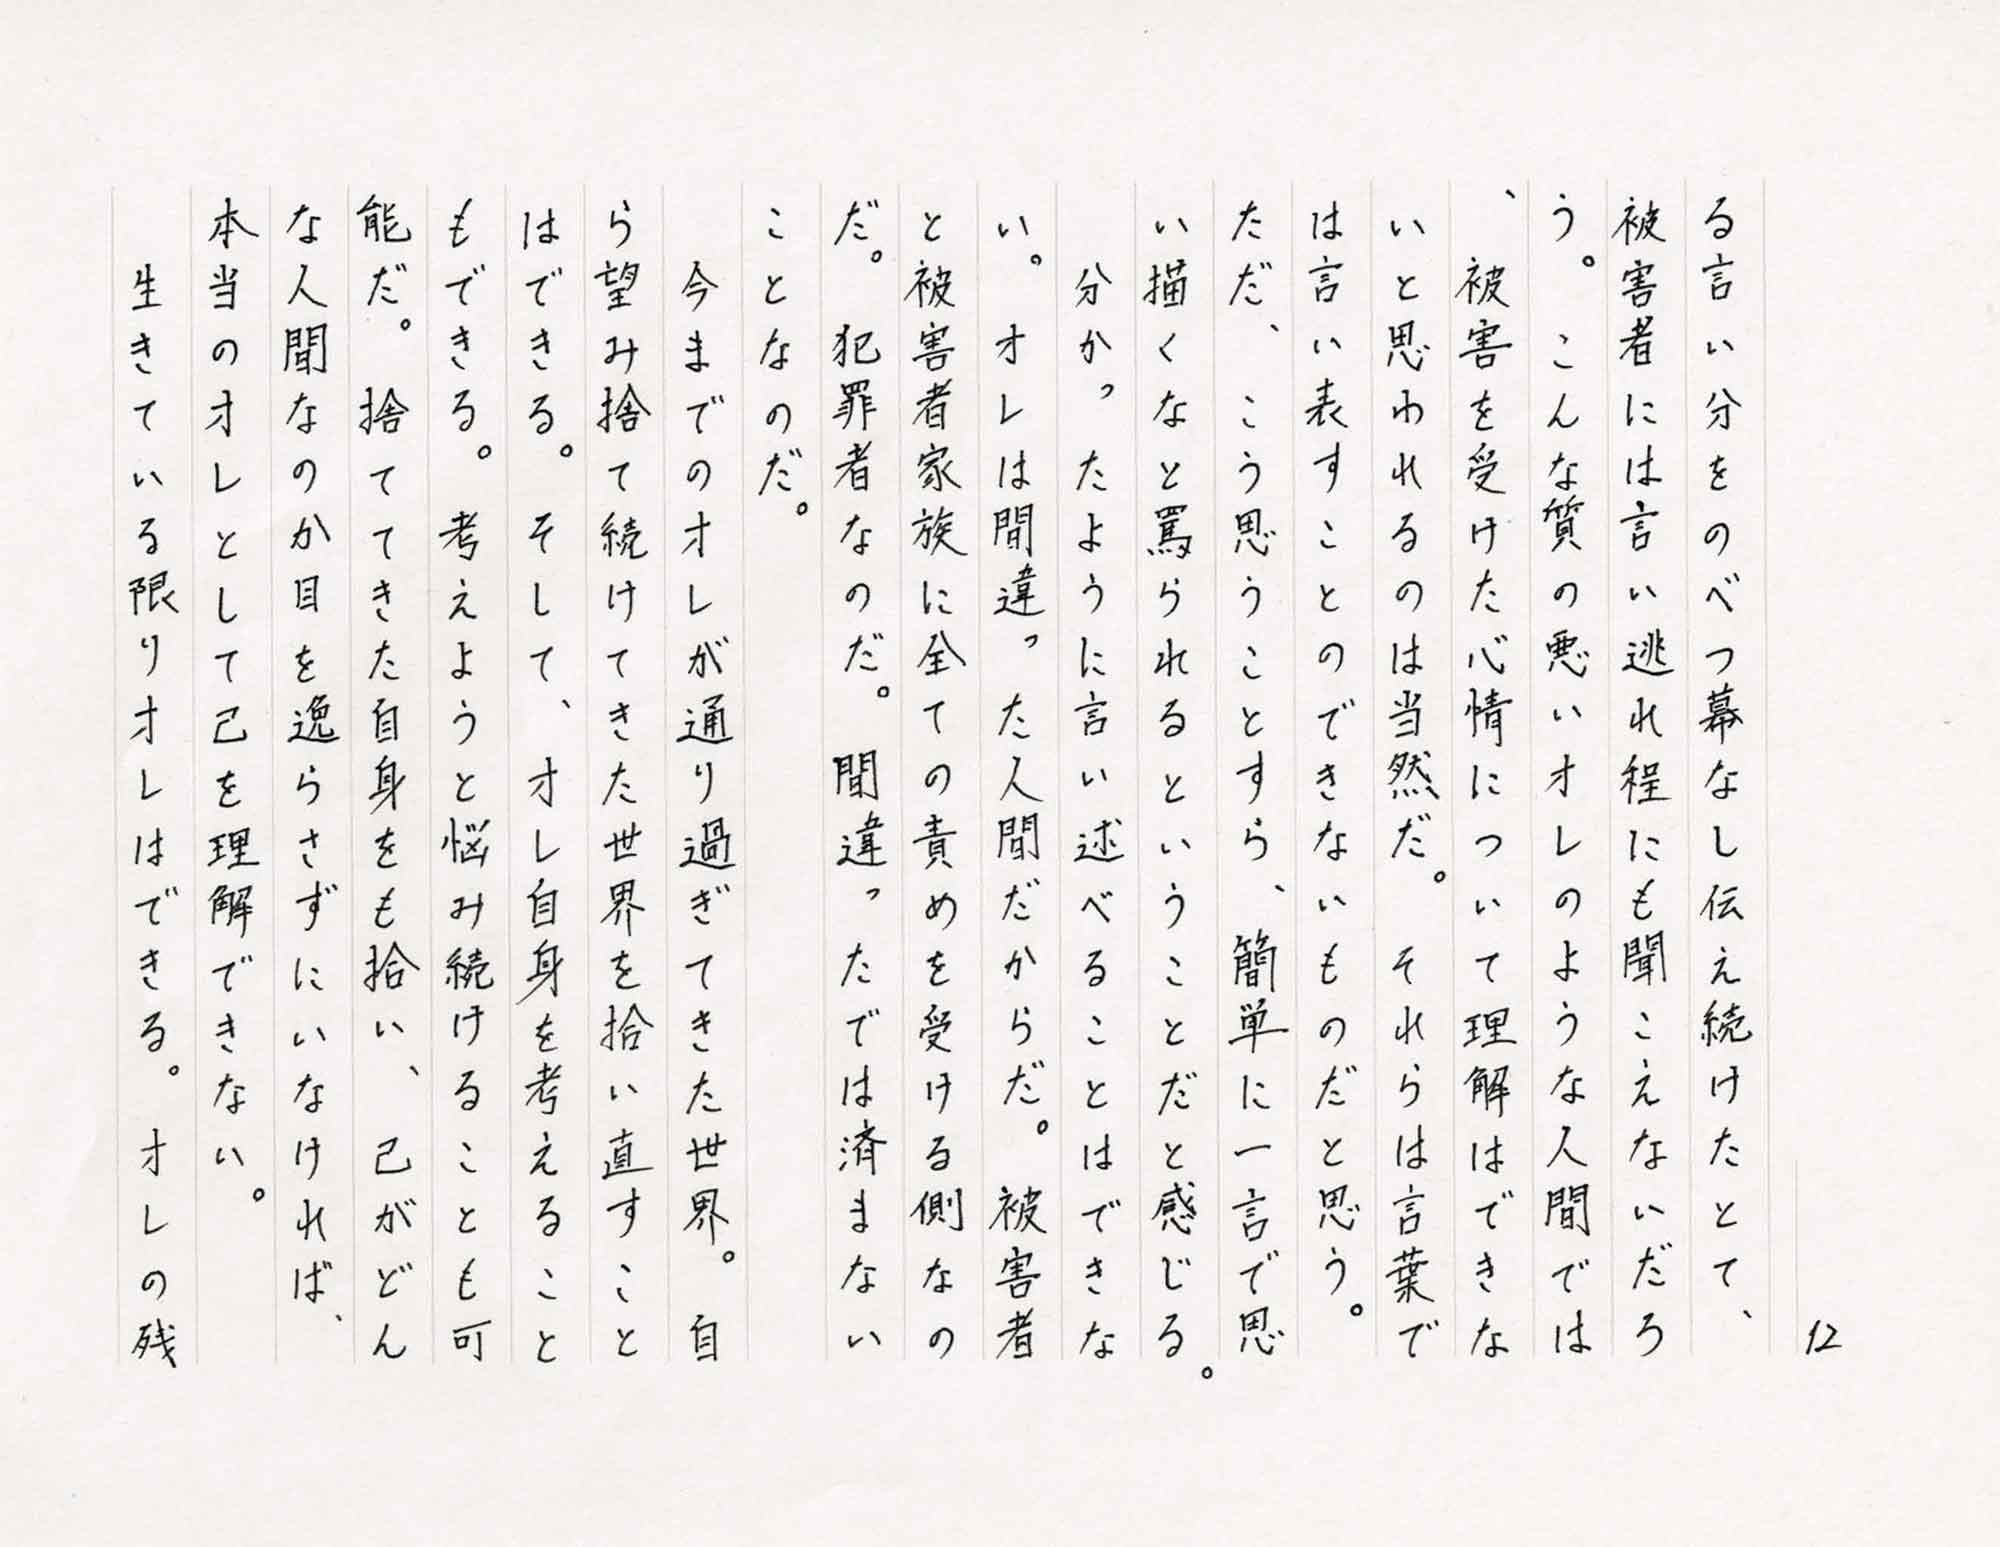 12
る言い分をのべつ幕なし伝え続けたとて、
被害者には言い逃れ程にも聞こえないだろ
う。こんな質の悪いオレのような人間では
、被害を受けた心情について理解はできな
いと思われるのは当然だ。それらは言葉で
は言い表すことのできないものだと思う。
ただ、こう思うことすら、簡単に一言で思
い描くなと罵られるということだと感じる。
分かったように言い述べることはできな
い。オレは間違った人間だからだ。被害者
と被害者家族に全ての責めを受ける側なの
だ。犯罪者なのだ。間違ったでは済まない
ことなのだ。
今までのオレが通り過ぎてきた世界。自
ら望み捨て続けてきた世界を拾い直すこと
はできる。そして、オレ自身を考えること
もできる。考えようと悩み続けることも可
能だ。捨ててきた自身をも拾い、己がどん
な人間なのか目を逸らさずにいなければ、
本当のオレとして己を理解できない。
生きている限りオレはできる。オレの残